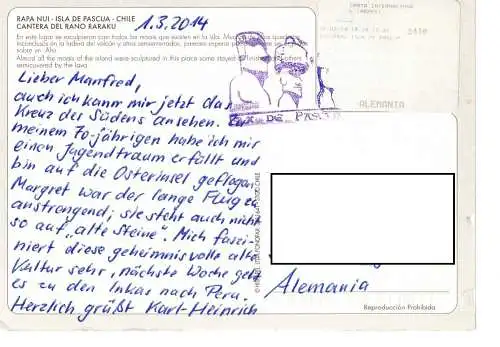 RAPA NUI - ISLA DE PASCUA - CHILE
CANTERA DEL RANO RARAKU
1.3.2014
En este lugar se esculpieron casi todos los moais que existen en la isla.
inconclusa en la ladera del volcán y otros semienterrados, parecieran esperar
sobre un Ahu
Almost all the moais of the island were sculptured in this place some stayed unfinished others
semicovered by the lava
CARTA INTERNACIONAL
ALEMANIA
ISLA DE PASCUA
Lieber Manfred,
auch ich kann mir jetzt das
Kreuz des Südens ansehen. Zu
meinem 70-jährigen habe ich mir
einen Jugendtraum erfüllt und
bin auf die Osterinsel geflogen.
Margret war der lange Flug zu
anstrengend; sie steht auch nicht
so auf „alte Steine". Mich faszi-
niert diese geheimnisvolle alte
Kultur sehr, nächste Woche geht
es zu den Inkas nach Peru.
Herzlich grüßt Karl-Heinrich
Alemania
Reproducción Prohibida